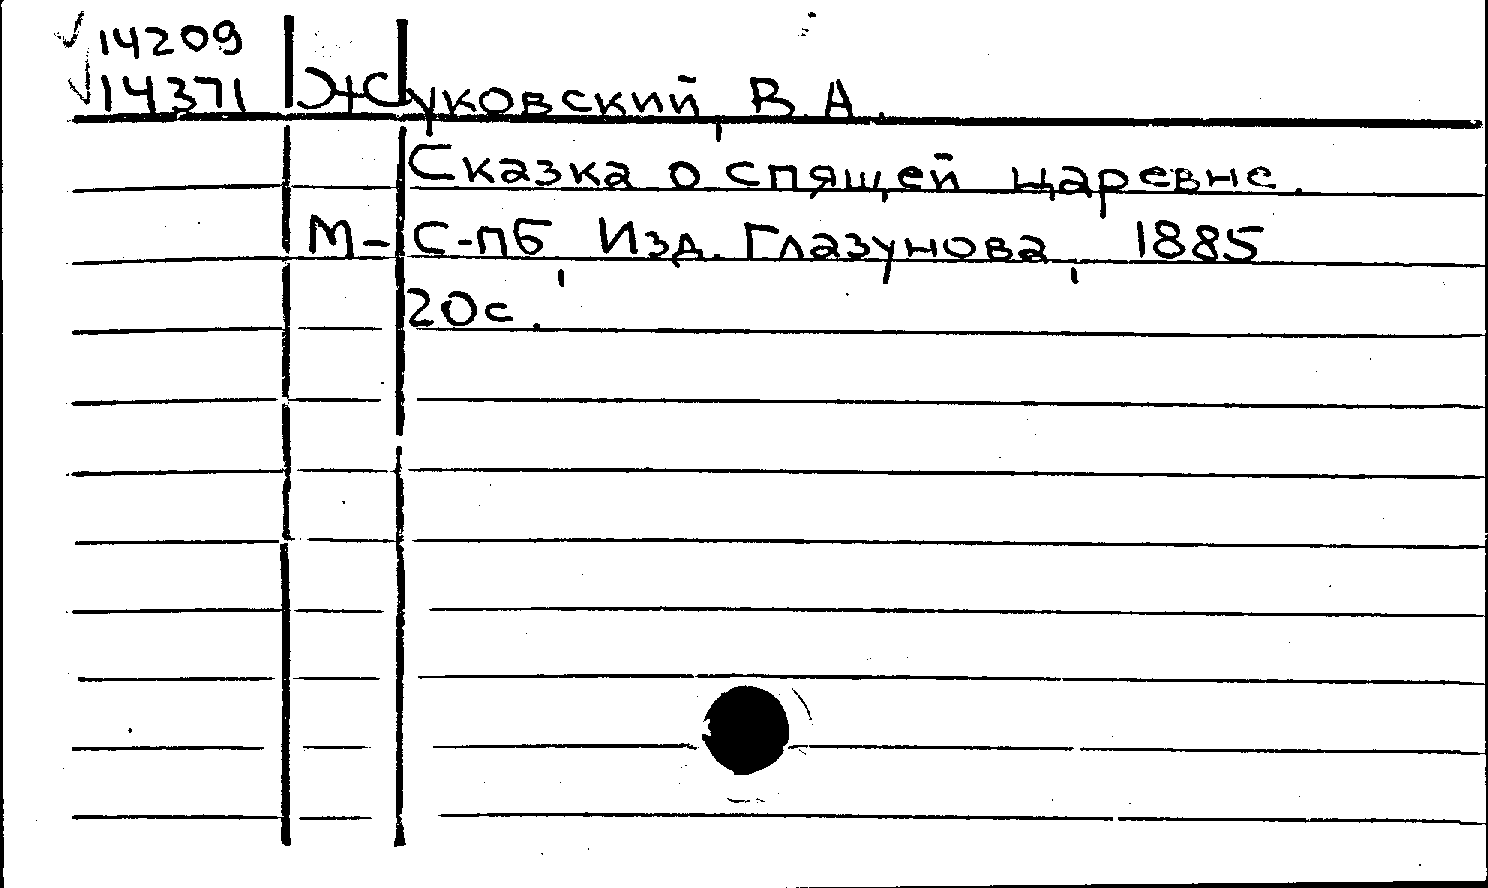 ✓14209
✓14371 Жуковский, В. А.
Сказка о спящей царевне.
М-С-пб, Изд. Глазунова, 1885
20с.